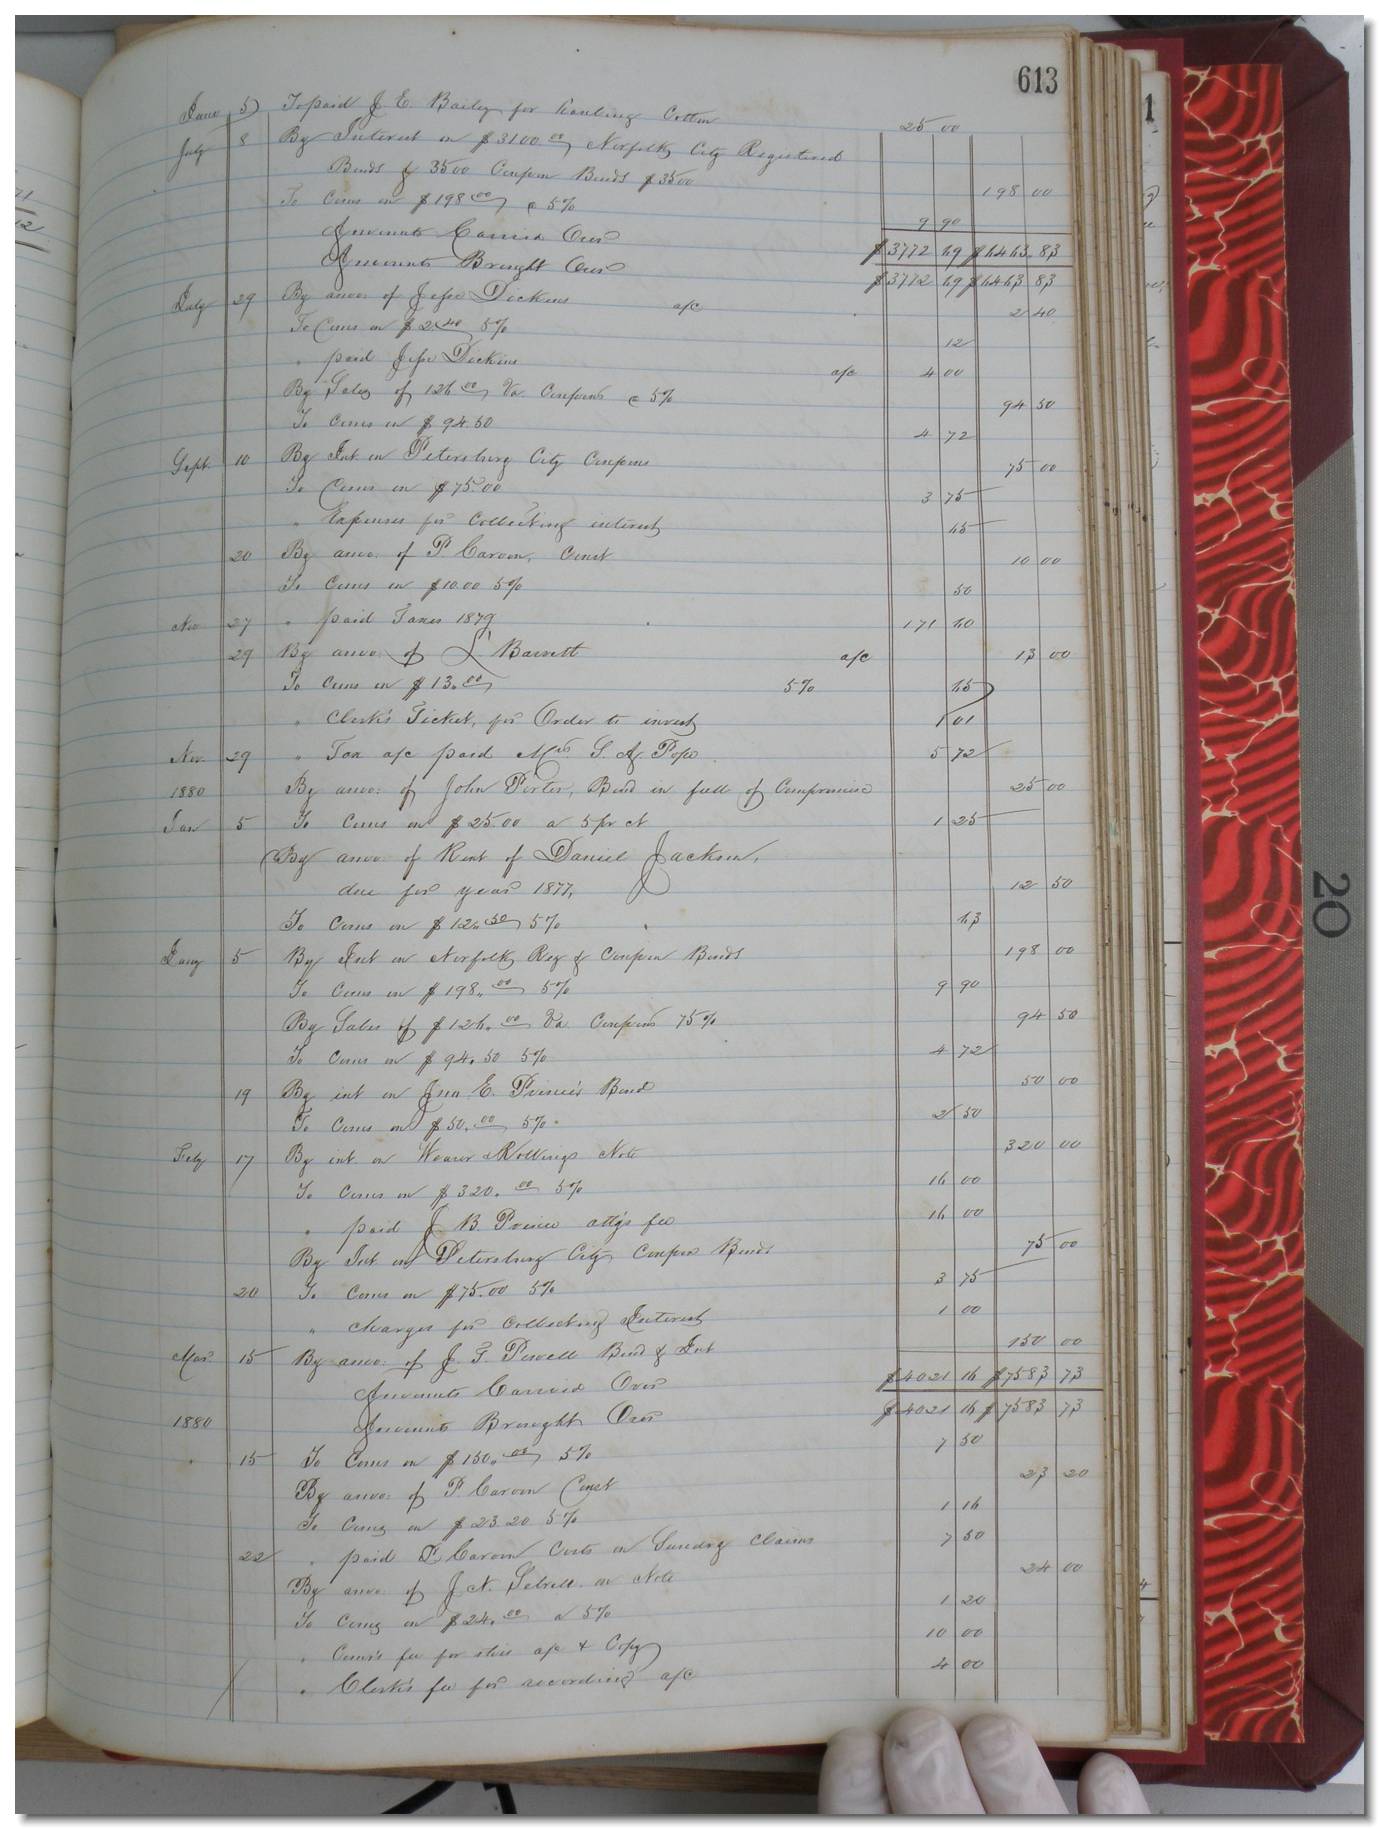 613
June 5 To paid J. E. Baily for hauling Cotton 25 00
July 8 By Interest on $3100 00 Norfolk City Registered
Bonds & 3500 Coupon Bonds $3500 198 00
To Coms on $198 00 @ 5% 9 90
Amounts Carried Over $3772 69 $6463.83
Amounts Brought Over $3772 69 $6463 83
July 29 By amo: of Jesse Dickens a/c 2 40
To Coms on $2.40 5% 12
" paid Jesse Dickens a/c 4 00
By Sales of 126 00 Va. Coupons @ 5% 94 50
To Coms on $94.50 4 72
Sept. 10 By Int. on Petersburg City Coupons 75 00
To Coms on $75.00 3 75
" Expenses for Collecting interest 65
20 By amo: of P. Caroon, Const 10 00
To Coms on $10.00 5% 50
Nov 27 " paid Taxes 1879 171 60
29 By amo: of L Barrett a/c 13 00
To Coms on $13.00 5% 65
" Clerk's Ticket, for Order to invest 1 01
Nov. 29 " Tax a/c paid Mrs. S. A. Pope 5 72
1880 By amo: of John Porter, Bond in full of Compromise 25 00
Jan 5 To Coms on $25.00 a 5 pr ct 1 25
By amo: of Rent of Daniel Jackson,
due for year 1877, 12 50
To Coms on $12.50 5% 63
Jany 5 By Int on Norfolk Reg & Coupon Bonds 198 00
To Coms on $198.00 5% 9 90
By Sales of $126.00 Va Coupons 75% 94 50
To Coms on $94.50 5% 4 72
19 By int on Jno. E. Prince's Bond 50 00
To Coms on $50.00 5% 2 50
Feby 17 By int. on Rollings Note 320 00
To Coms on $320.00 5% 16 00
" paid J B. Prince atty's fee 16 00
By Int on Petersburg City Coupon Bonds 75 00
20 To Coms on $75.00 5% 3 75
" charges for Collecting Interest 1 00
Mar. 15 By amo: of J. T. Powell Bond & Int 150 00
Amounts Carried Over $4021 16 $7583 73
1880 Amounts Brought Over $4021 16 $7583 73
" 15 To Coms on $150.00 5% 7 50
By amo: of P. Caroon Const 23 20
To Coms on $23 20 5% 1 16
22 " paid P. Caroon Costs on Sundry Claims 7 50
By amo: of J. N. Sebrell on Note 24 00
To Coms on $24.00 a 5% 1 20
" Comr's fee for this a/c & Copy 10 00
" Clerk's fee for recording a/c 4 00
20